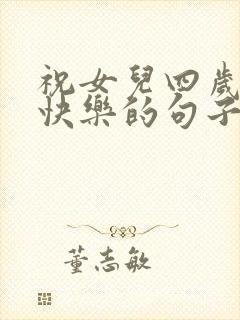 祝女兒四歲
快樂的句子
董志敏